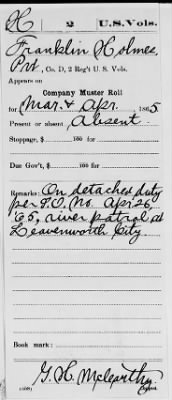 H 2 U.S. Vols.
Franklin Holmes
Pvt., Co. D, 2 Reg't U. S. Vols.
Appears on
Company Muster Roll
for Mar. & Apr. 1865
Present or absent Absent.
Stoppage, $ 100 for
Due Gov't, $ 100 for
Remarks: On detached duty
per S.O. No. Apr. 26
'65, river patrol at
Leavenworth City.
Book mark:
G. H. McCarthy